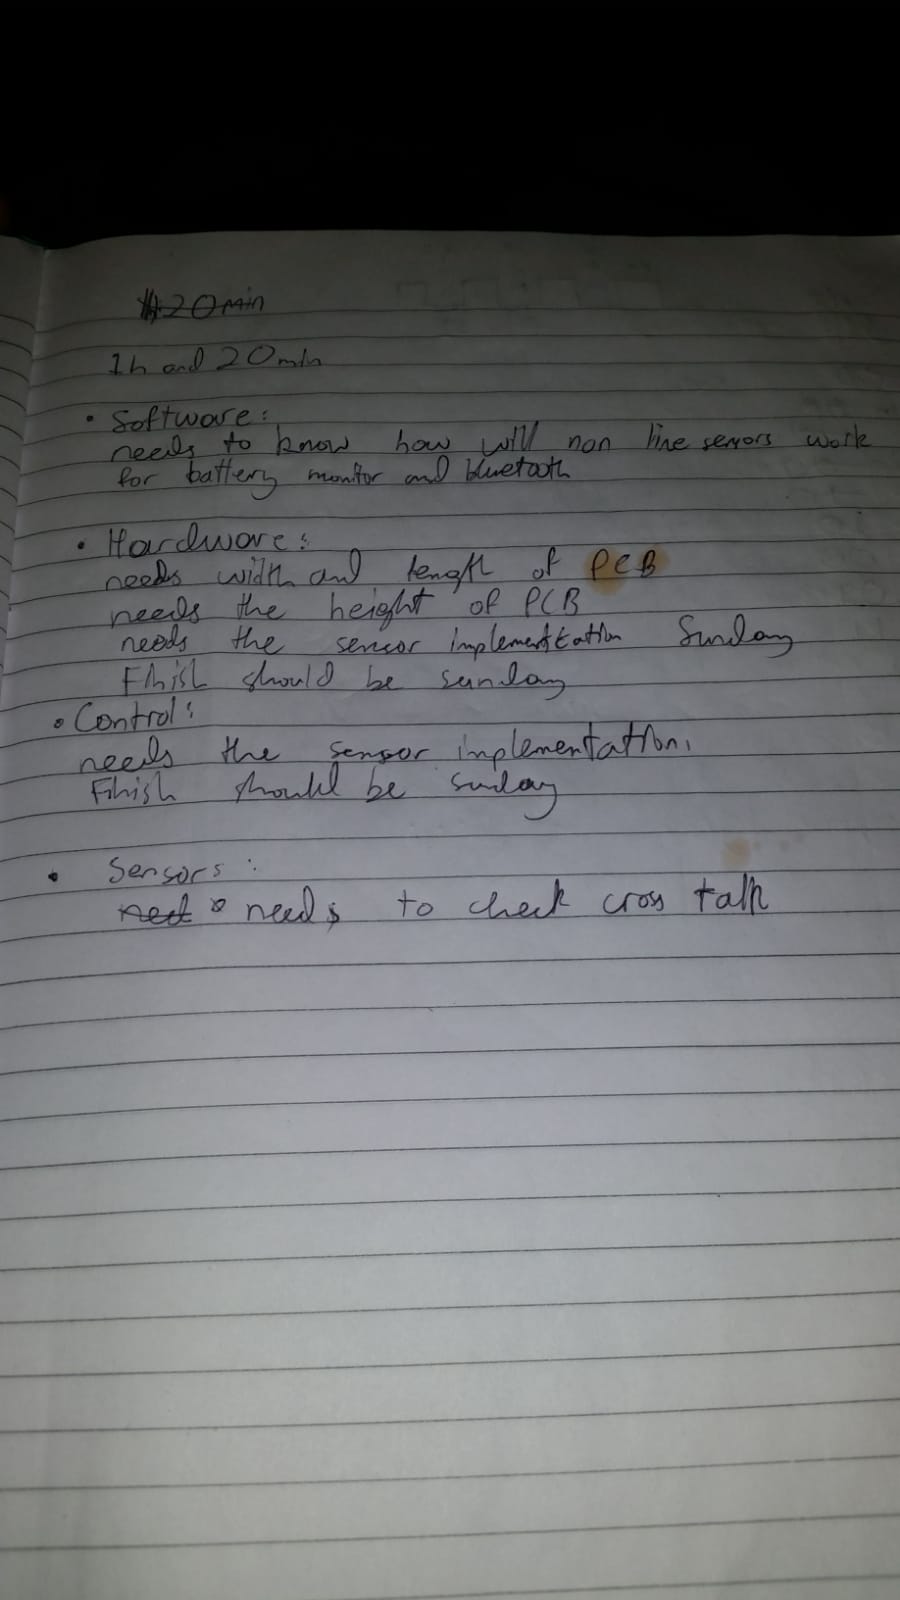 20min
1h and 20min
• Software:
needs to know how will non line sensors work
for battery monitor and bluetooth
• Hardware:
needs width and length of PCB
needs the height of PCB
needs the sensor implementation Sunday
Finish should be sunday
• Control:
needs the sensor implementation.
Finish should be sunday
• Sensors:
needs to check cross talk